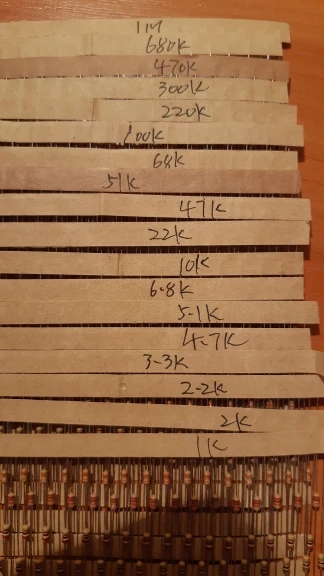 1M
680K
470K
300K
220K
100K
68K
51K
47K
22K
10K
6.8K
5.1K
4.7K
3.3K
2.2K
2K
1K